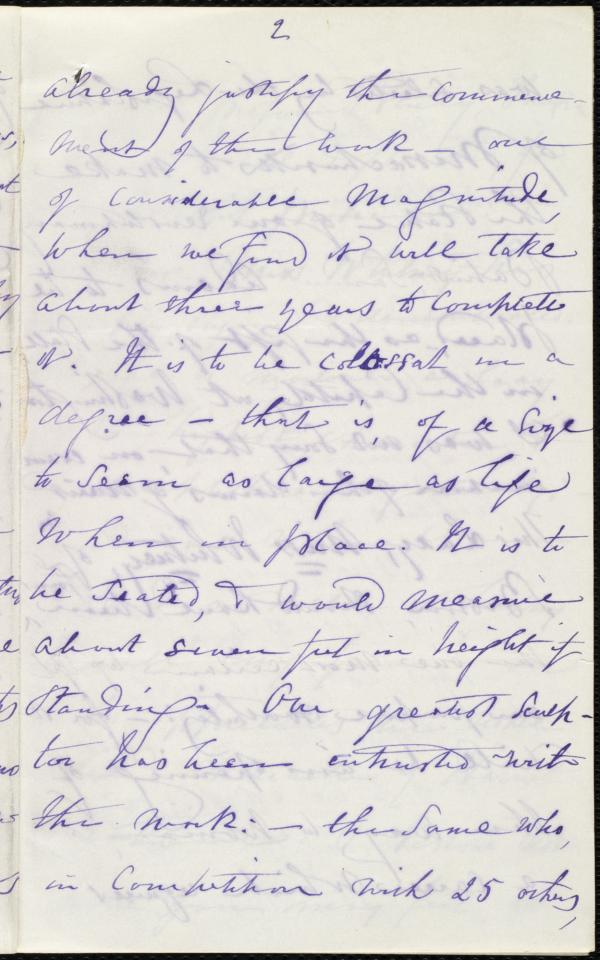 2
already justify the commence-
ment of the work – one
of considerable magnitude,
when we find it will take
about three years to complete
it. It is to be colossal in a
degree – that is, of a size
to seem as large as life
when in place. It is to
be seated, & would measure
about seven feet in height if
standing. Our greatest sculp-
tor has been entrusted with
the work: – the same who,
in competition with 25 others,